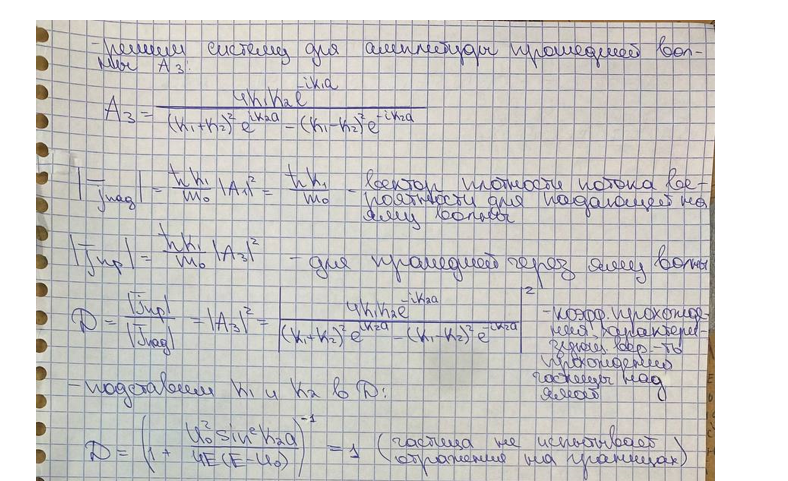 - решим систему для амплитуды прошедшей вол-
ны A₃:
A₃ = 4k₁k₂e^{-ik₁a} / ((k₁+k₂)² e^{ik₂a} - (k₁-k₂)² e^{-ik₂a})
|j̅пад| = ħk₁/m₀ |A₁|² = ħk₁/m₀ - вектор плотности потока ве-
роятности для падающей на
яму волны
|j̅пр| = ħk₁/m₀ |A₃|² - для прошедшей через яму волны
D = |j̅пр|/|j̅пад| = |A₃|² = |4k₁k₂e^{-ik₂a} / ((k₁+k₂)² e^{ik₂a} - (k₁-k₂)² e^{-ik₂a})|² - коэф. прохожде-
ния, характери-
зующ. вер.-ть
прохождения
частицы над
ямой
- подставим k₁ и k₂ в D:
D = (1 + U₀² sin² k₂a / 4E(E-U₀))⁻¹ = 1 (частица не испытывает
отражения на границах)